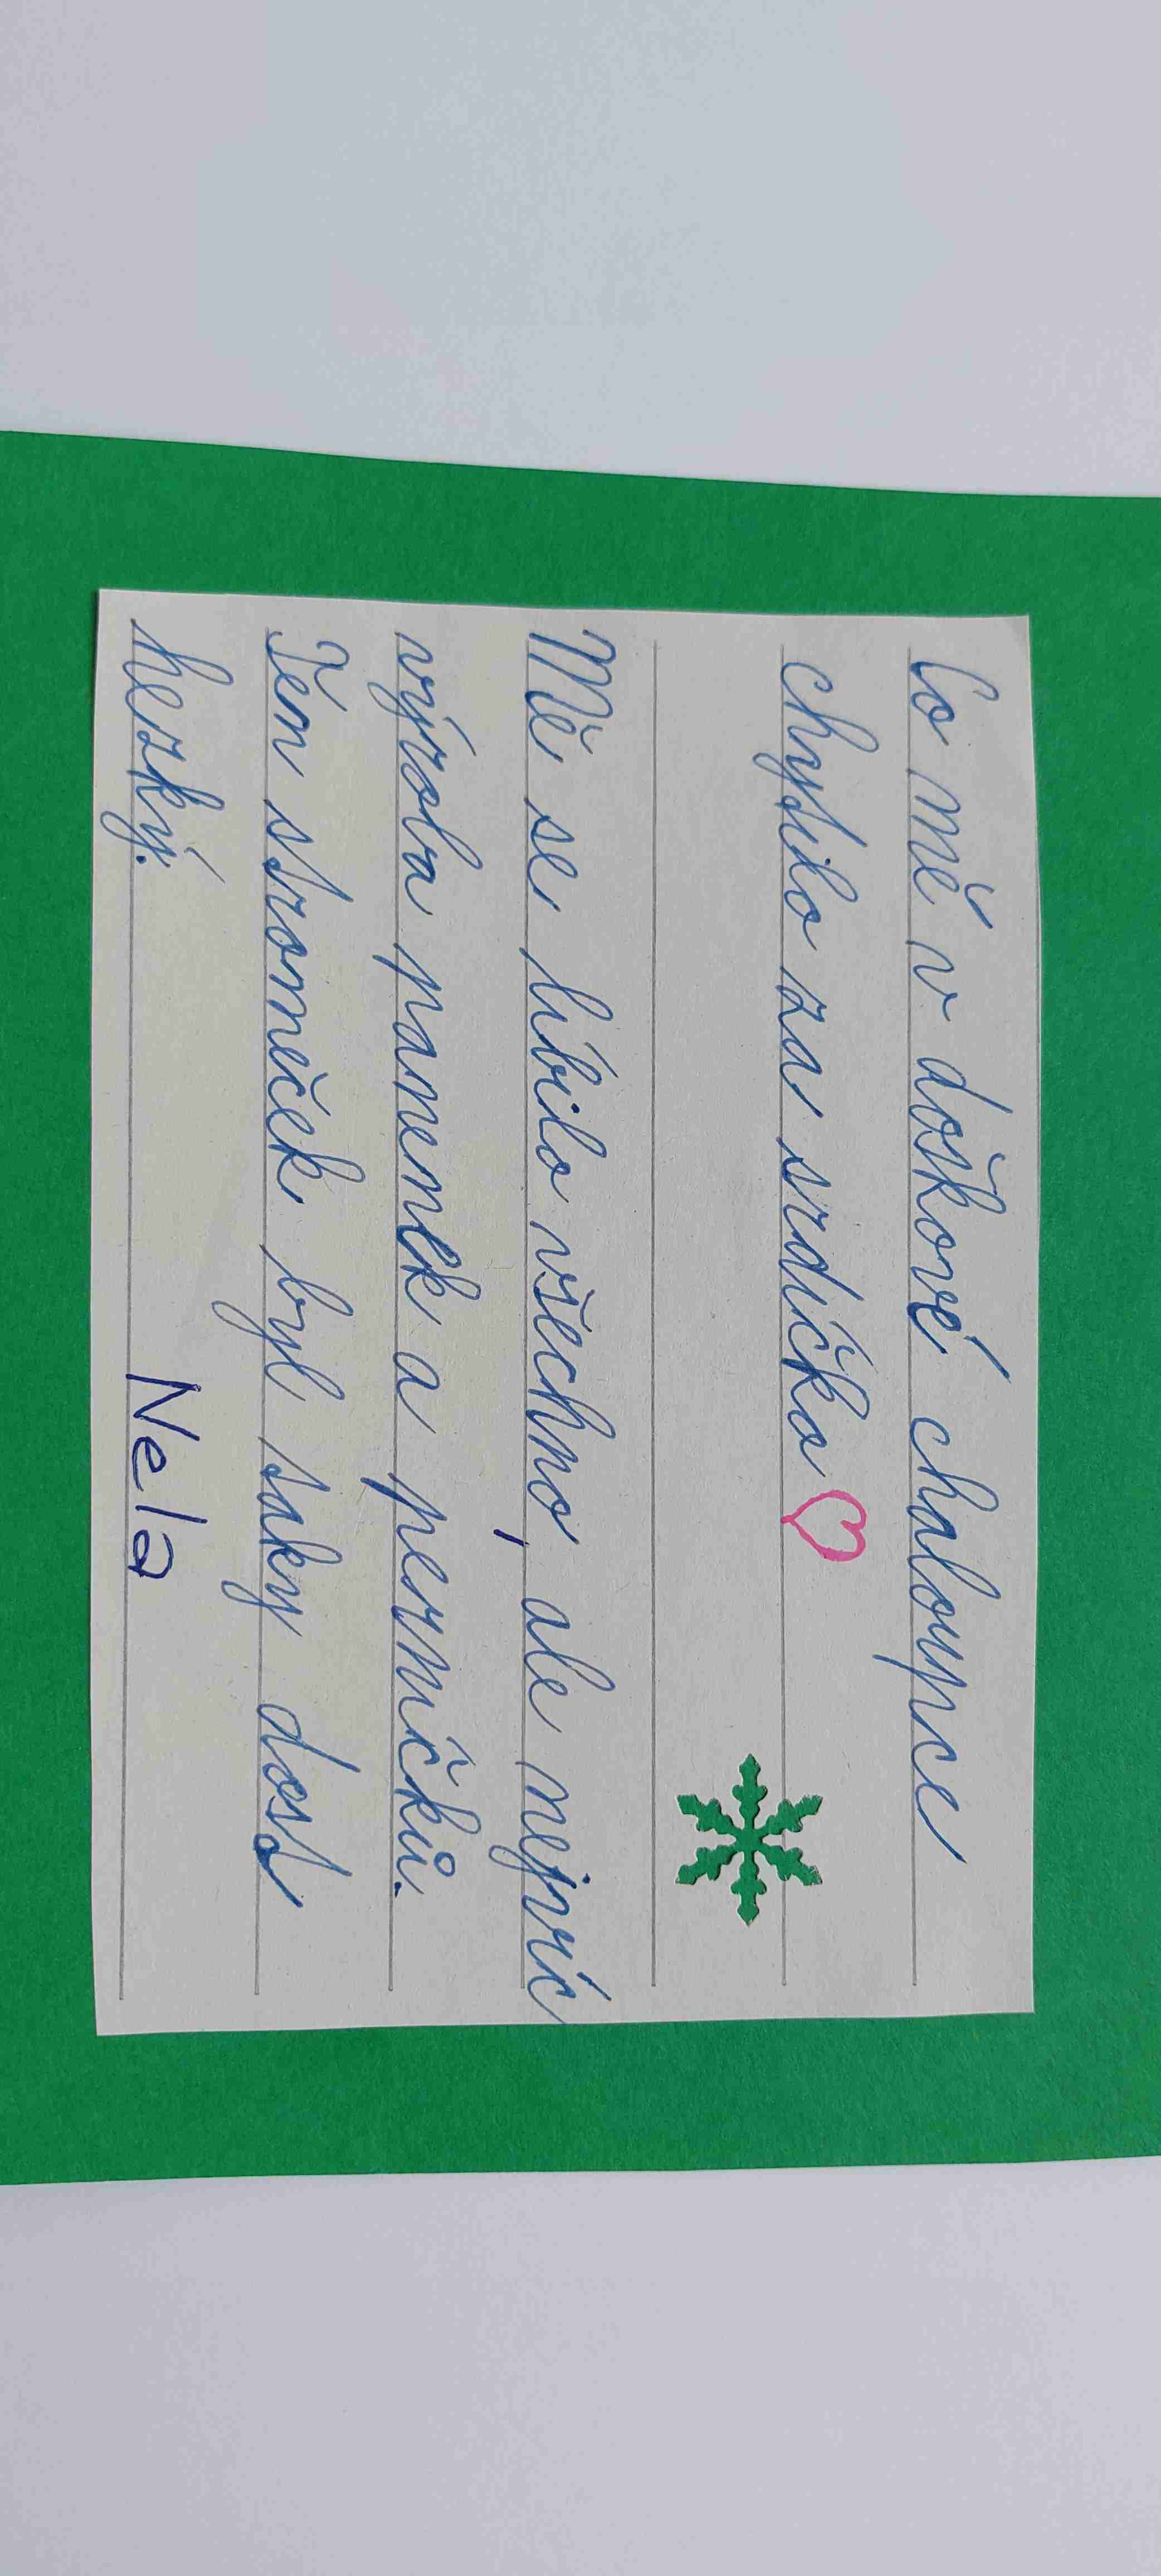 Co mě v doškové chaloupce
chytilo za srdíčko
Mě se líbilo všechno, ale nejvíc
výroba panenek a permíčků.
Ten stromeček byl taky dost
hezký.
Nela